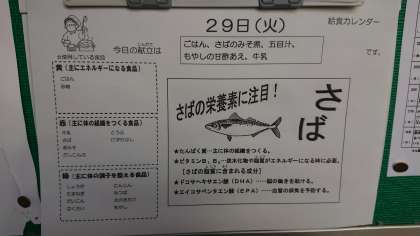 29日(火)
給食カレンダー
今日の献立は
ごはん、さばのみそ煮、五目汁、
もやしの甘酢あえ、牛乳
です。
☆使用している食品
黄(主にエネルギーになる食品)
ごはん
砂糖
赤(主に体の組織をつくる食品)
牛乳
とうふ
さば
緑(主に体の調子を整える食品)
しょうが
にんじん
たまねぎ
だいこん
もやし
さばの栄養素に注目!
さば
★たんぱく質…主に体の組織をつくる。
★ビタミンB₁、B₂…炭水化物や脂質がエネルギーになる時に必要。
【さばの脂質に含まれる成分】
★ドコサヘキサエン酸(DHA)……脳の働きを助ける。
★エイコサペンタエン酸(EPA)……血管の病気を予防する。